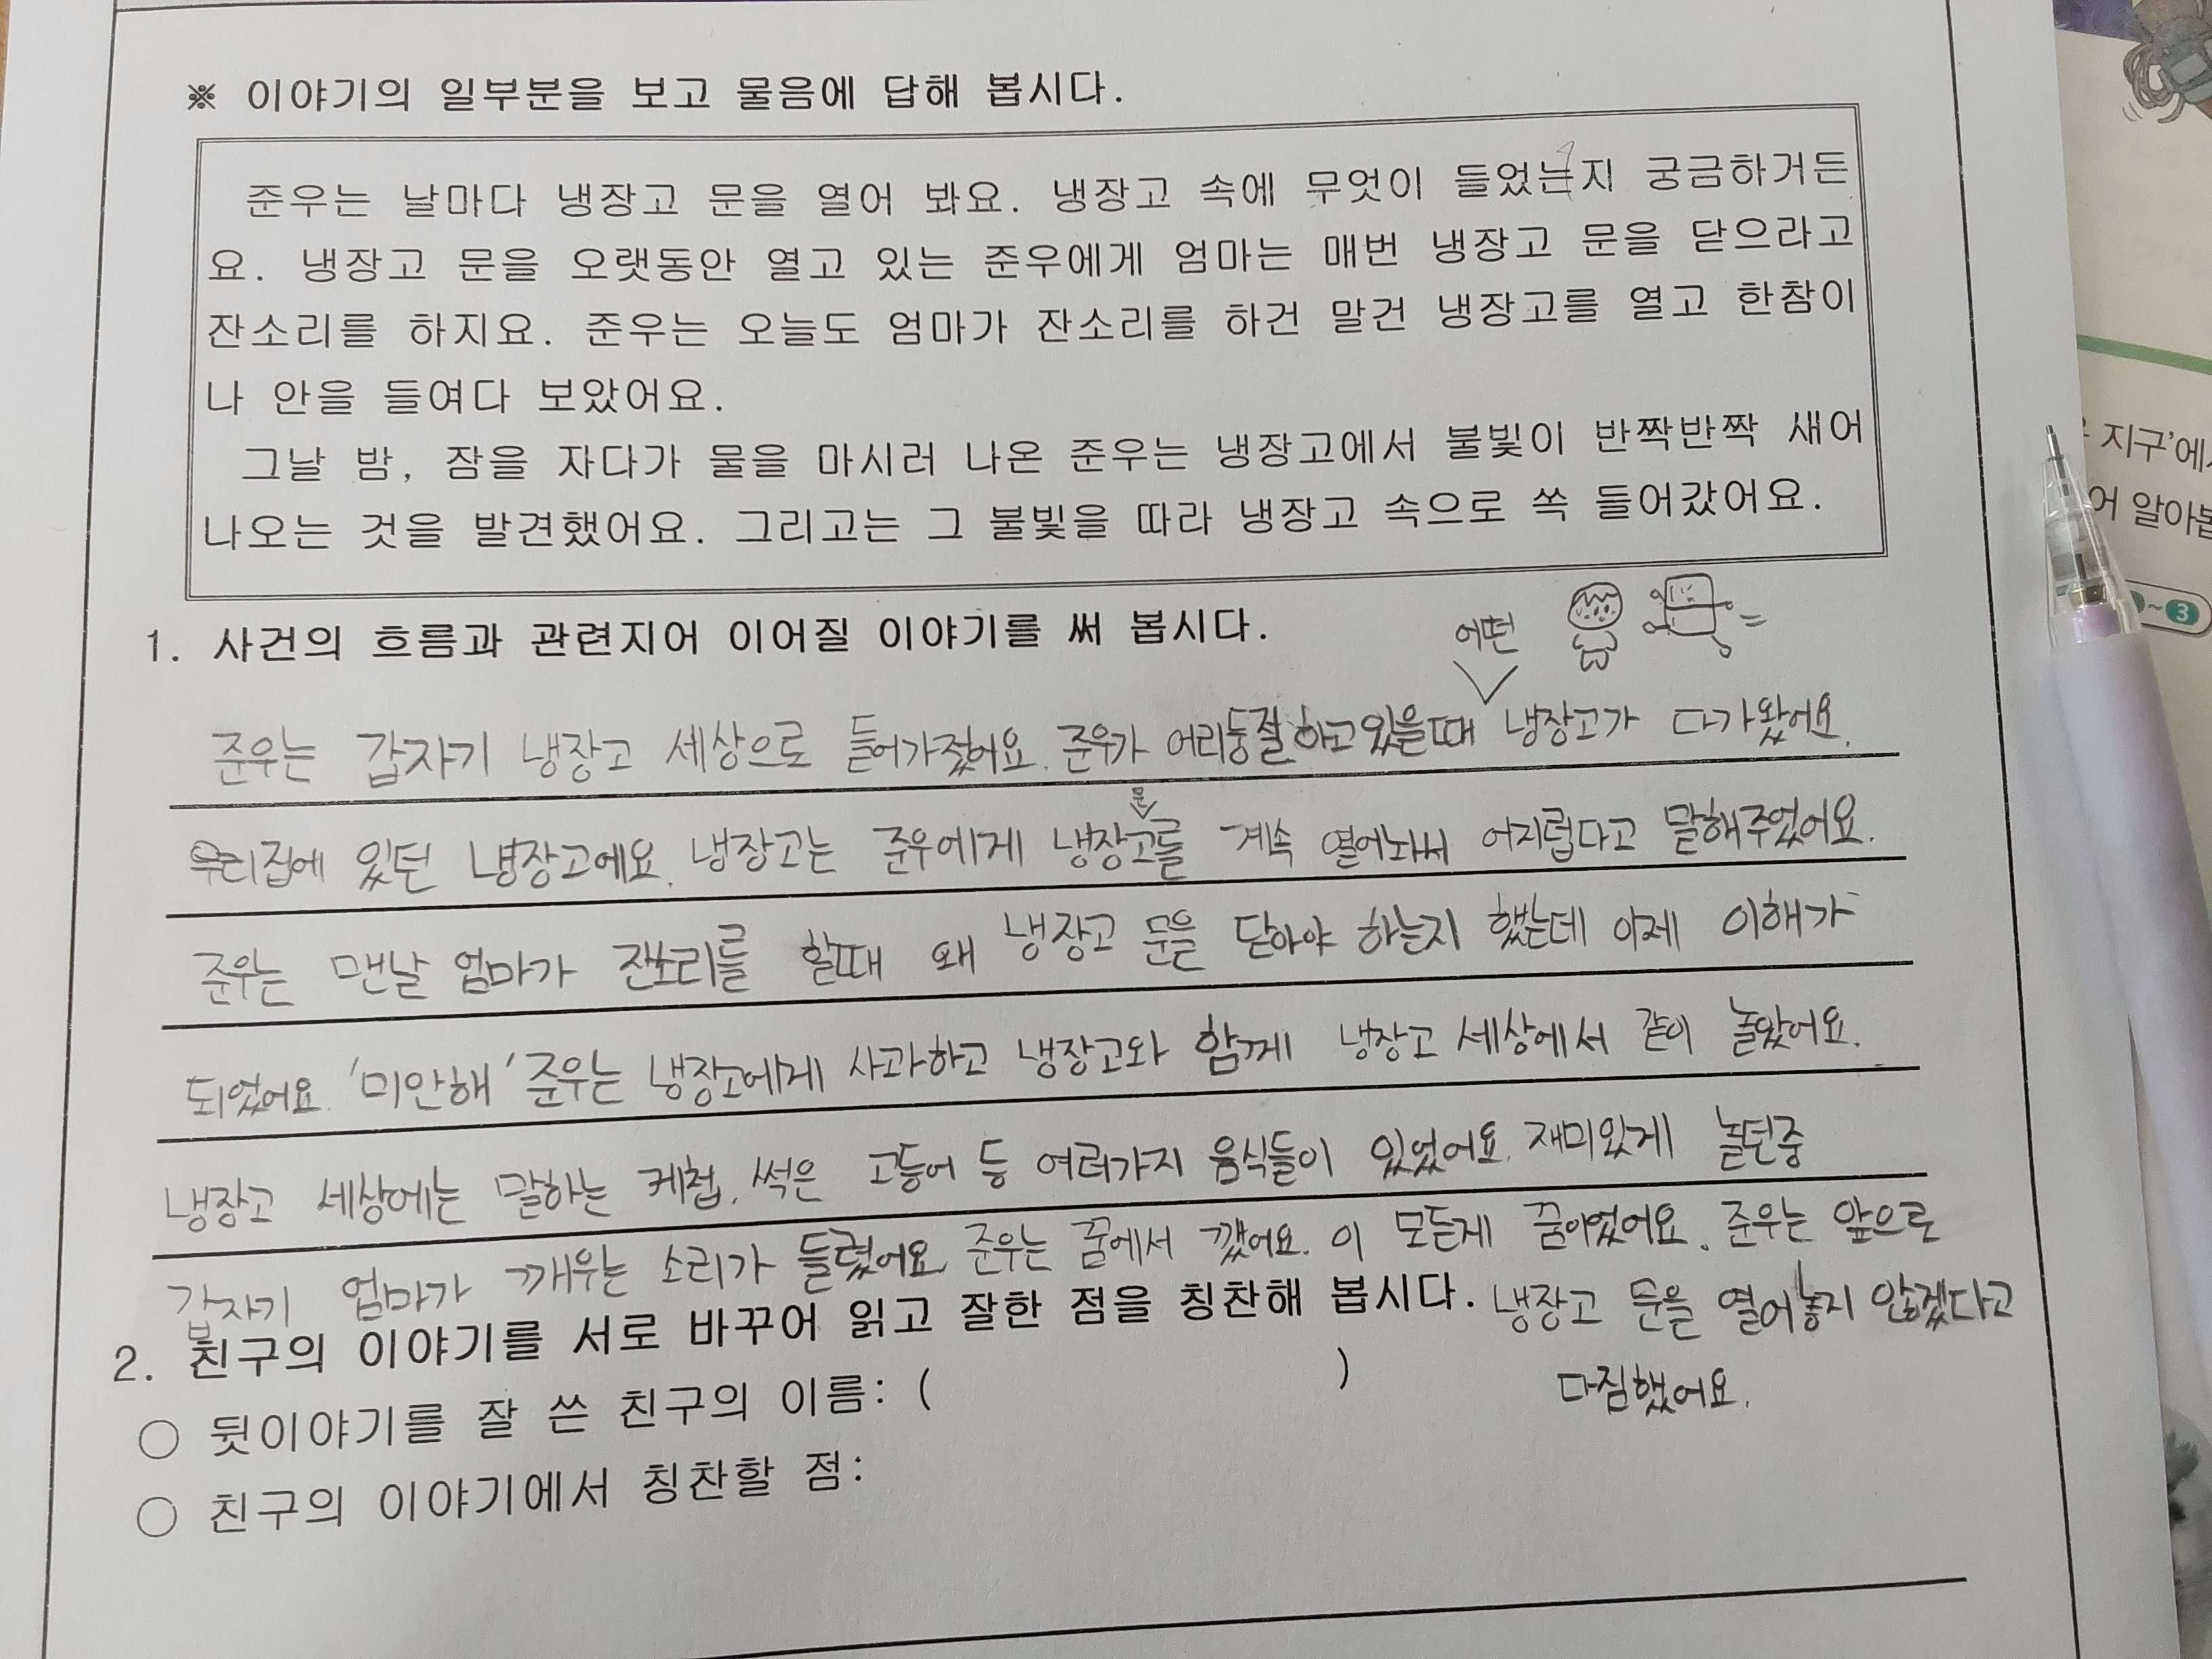 ※ 이야기의 일부분을 보고 물음에 답해 봅시다.
준우는 날마다 냉장고 문을 열어 봐요. 냉장고 속에 무엇이 들었는지 궁금하거든
요. 냉장고 문을 오랫동안 열고 있는 준우에게 엄마는 매번 냉장고 문을 닫으라고
잔소리를 하지요. 준우는 오늘도 엄마가 잔소리를 하건 말건 냉장고를 열고 한참이
나 안을 들여다 보았어요.
그날 밤, 잠을 자다가 물을 마시러 나온 준우는 냉장고에서 불빛이 반짝반짝 새어
나오는 것을 발견했어요. 그리고는 그 불빛을 따라 냉장고 속으로 쏙 들어갔어요.
1. 사건의 흐름과 관련지어 이어질 이야기를 써 봅시다.
어떤
준우는 갑자기 냉장고 세상으로 들어가졌어요. 준우가 어리둥절하고있을때 냉장고가 다가왔어요.
문
우리집에 있던 냉장고에요. 냉장고는 준우에게 냉장고를 계속 열어놔서 어지럽다고 말해주었어요.
준우는 맨날 엄마가 잔소리를 할때 왜 냉장고 문을 닫아야 하는지 했는데 이제 이해가
되었어요. '미안해' 준우는 냉장고에게 사과하고 냉장고와 함께 냉장고 세상에서 같이 놀았어요.
냉장고 세상에는 말하는 케첩, 썩은 고등어 등 여러가지 음식들이 있었어요. 재미있게 놀던중
갑자기 엄마가 깨우는 소리가 들렸어요. 준우는 꿈에서 깼어요. 이 모든게 꿈이었어요. 준우는 앞으로
냉장고 문을 열어놓지 않겠다고
다짐했어요.
2. 친구의 이야기를 서로 바꾸어 읽고 잘한 점을 칭찬해 봅시다.
○ 뒷이야기를 잘 쓴 친구의 이름: ( )
○ 친구의 이야기에서 칭찬할 점:
지구'에
어 알아봅
~3